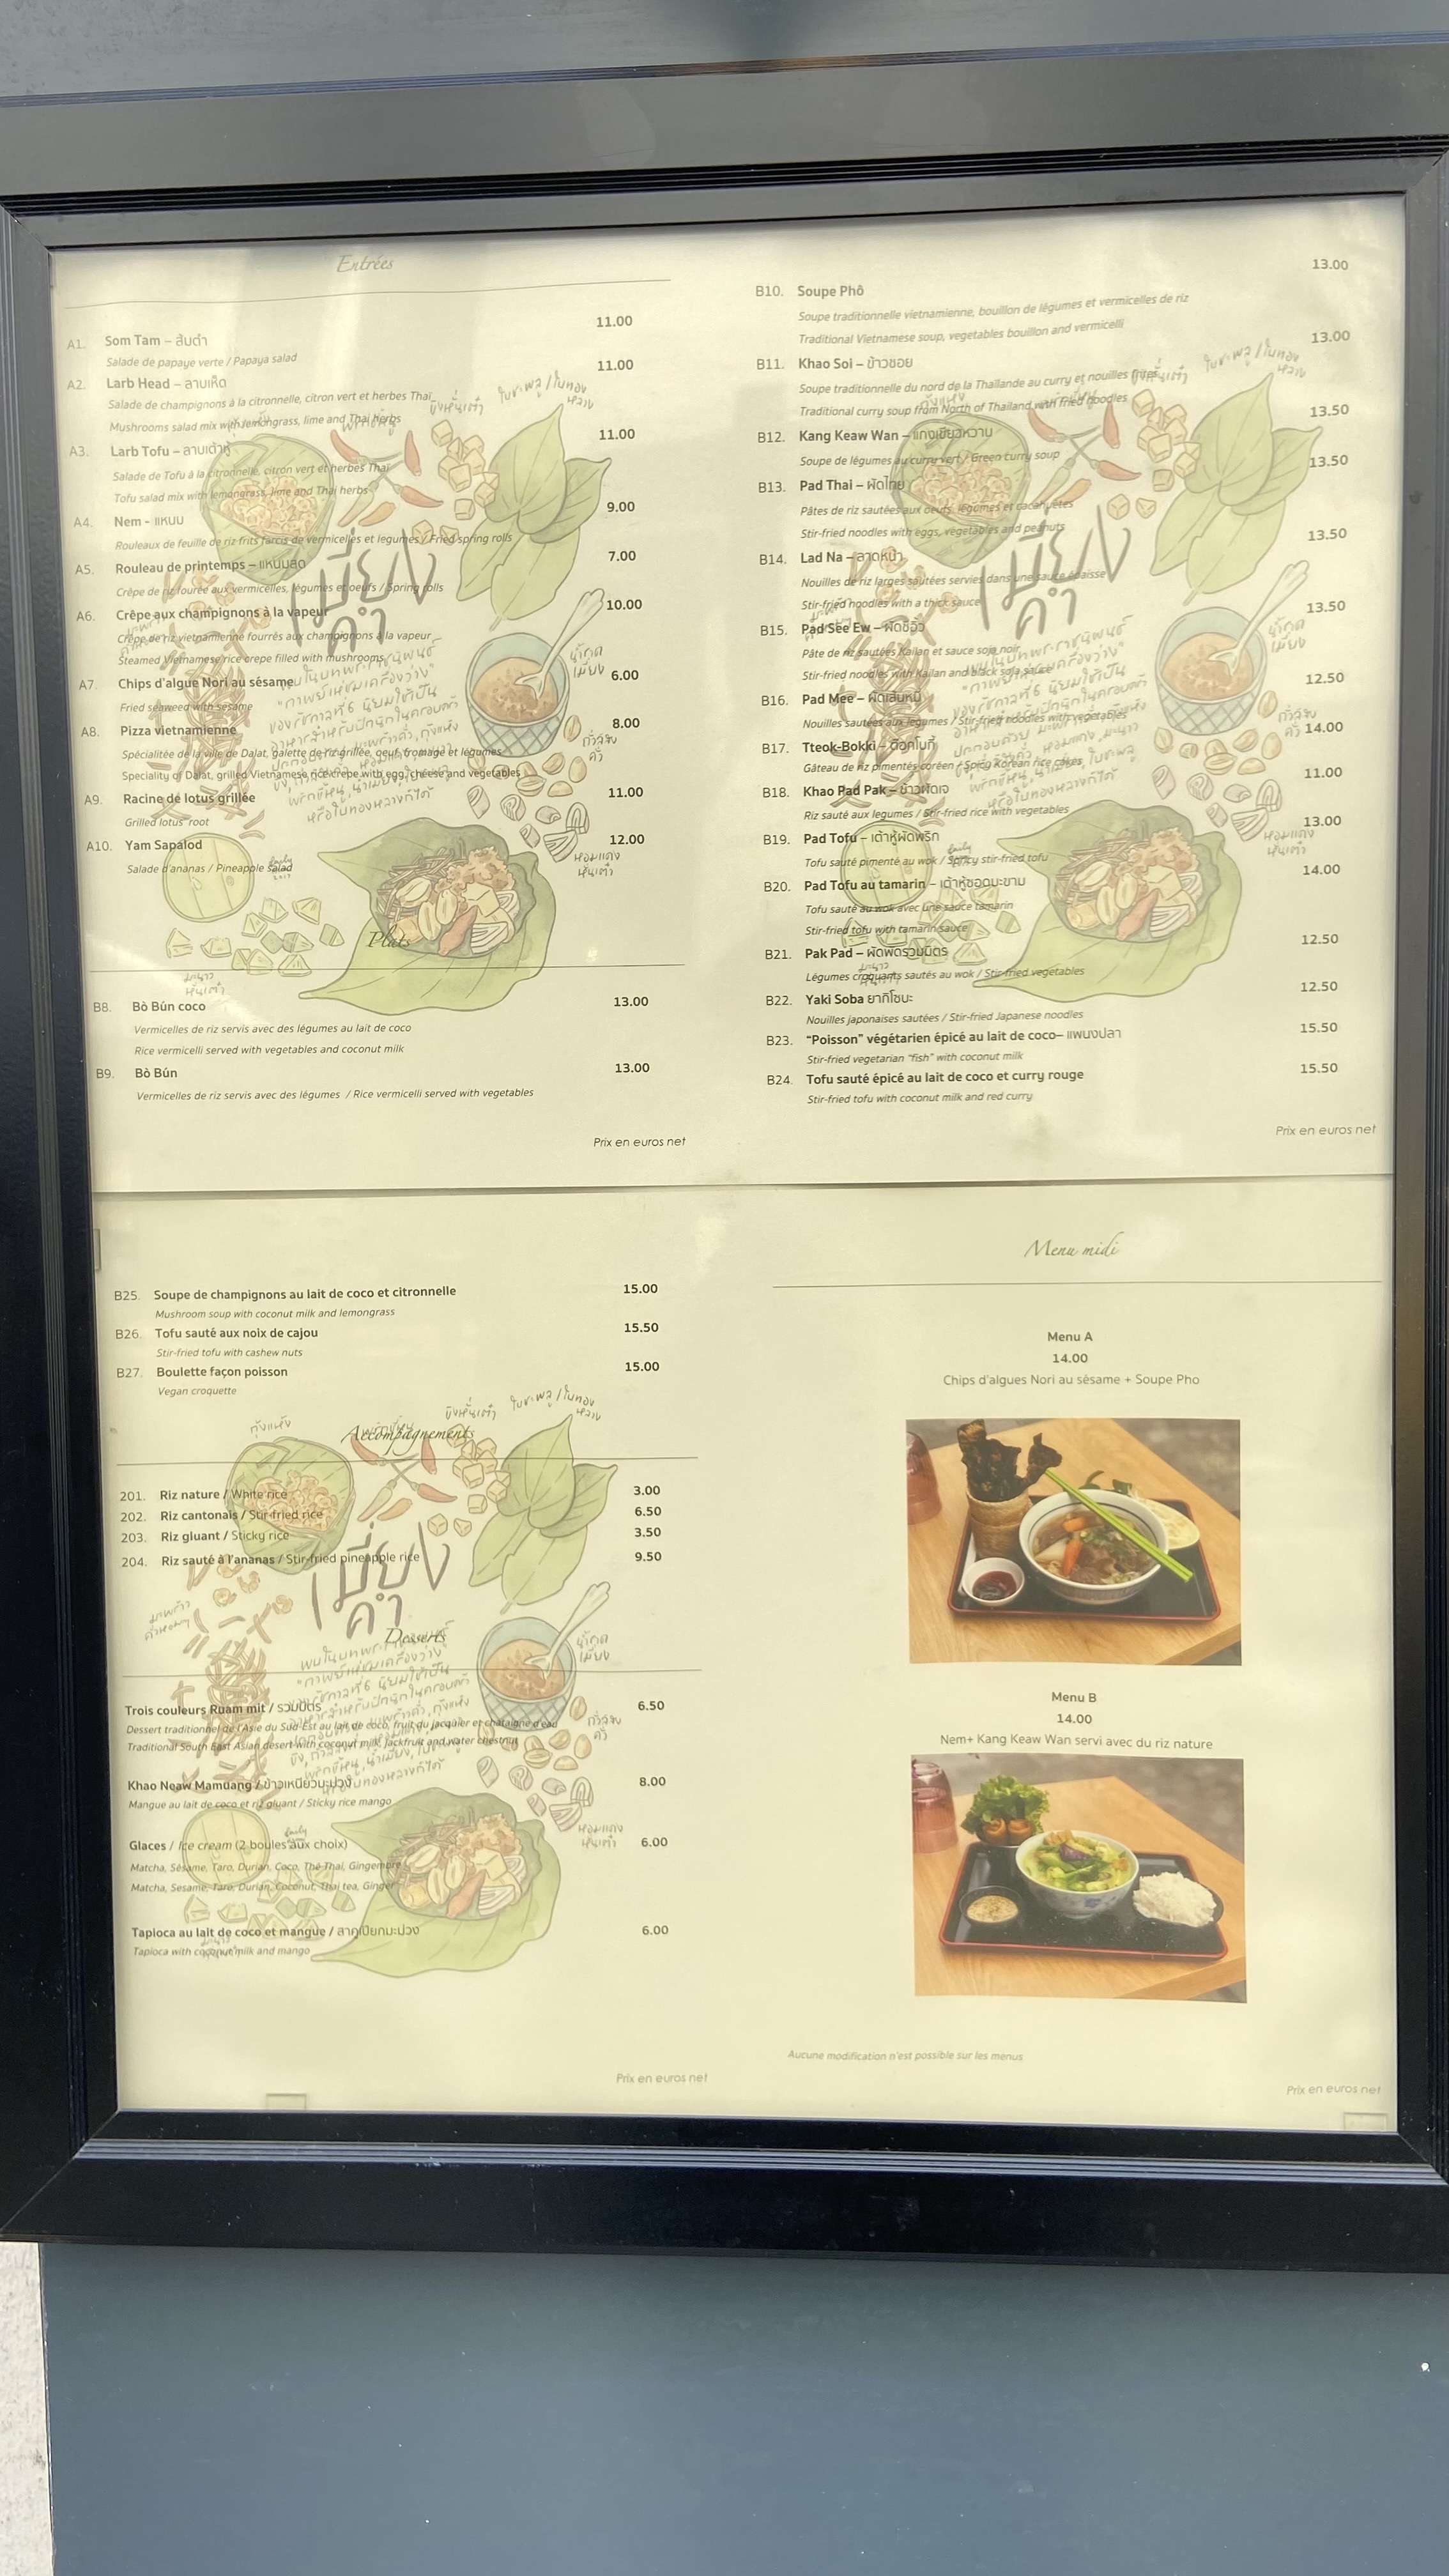 Entrées
A1. Som Tam – ส้มตำ 11.00
Salade de papaye verte / Papaya salad
A2. Larb Head – ลาบเห็ด 11.00
Salade de champignons à la citronnelle, citron vert et herbes Thai
Mushrooms salad mix with lemongrass, lime and Thai herbs
A3. Larb Tofu – ลาบเต้าหู้ 11.00
Salade de Tofu à la citronnelle, citron vert et herbes Thai
Tofu salad mix with lemongrass, lime and Thai herbs
A4. Nem - แหนม 9.00
Rouleaux de feuille de riz frits farcis de vermicelles et legumes / Fried spring rolls
A5. Rouleau de printemps – แหนมสด 7.00
Crêpe de riz fourée aux vermicelles, légumes et oeufs / Spring rolls
A6. Crêpe aux champignons à la vapeur 10.00
Crêpe de riz vietnamienne fourrés aux champignons à la vapeur
Steamed Vietnamese rice crepe filled with mushrooms
A7. Chips d'algue Nori au sésame 6.00
Fried seaweed with sesame
A8. Pizza vietnamienne 8.00
Spécialitée de la ville de Dalat, galette de riz grillée, oeuf, fromage et légumes
Speciality of Dalat, grilled Vietnamese rice crepe with egg, cheese and vegetables
A9. Racine de lotus grillée 11.00
Grilled lotus root
A10. Yam Sapalod 12.00
Salade d'ananas / Pineapple salad
Plats
B8. Bò Bún coco 13.00
Vermicelles de riz servis avec des légumes au lait de coco
Rice vermicelli served with vegetables and coconut milk
B9. Bò Bún 13.00
Vermicelles de riz servis avec des légumes / Rice vermicelli served with vegetables
Prix en euros net
B10. Soupe Phô 13.00
Soupe traditionnelle vietnamienne, bouillon de légumes et vermicelles de riz
Traditional Vietnamese soup, vegetables bouillon and vermicelli
B11. Khao Soi – ข้าวซอย 13.00
Soupe traditionnelle du nord de la Thaïlande au curry et nouilles frites
Traditional curry soup from North of Thailand with fried noodles
B12. Kang Keaw Wan – แกงเขียวหวาน 13.50
Soupe de légumes au curry vert / Green curry soup
B13. Pad Thai – ผัดไทย 13.50
Pâtes de riz sautées aux oeufs, légumes et cacahuètes
Stir-fried noodles with eggs, vegetables and peanuts
B14. Lad Na – ลาดหน้า 13.50
Nouilles de riz larges sautées servies dans une sauce épaisse
Stir-fried noodles with a thick sauce
B15. Pad See Ew – ผัดซีอิ้ว 13.50
Pâte de riz sautées Kailan et sauce soja noir
Stir-fried noodles with Kailan and black soja sauce
B16. Pad Mee – ผัดเส้นหมี่ 12.50
Nouilles sautées aux legumes / Stir-fried noodles with vegetables
B17. Tteok-Bokki – ต๊อกโบกี้ 14.00
Gâteau de riz pimentés coréen / Spicy Korean rice cakes
B18. Khao Pad Pak – ข้าวผัดเจ 11.00
Riz sauté aux legumes / Stir-fried rice with vegetables
B19. Pad Tofu – เต้าหู้ผัดพริก 13.00
Tofu sauté pimenté au wok / Spicy stir-fried tofu
B20. Pad Tofu au tamarin – เต้าหู้ซอดมะขาม 14.00
Tofu sauté au wok avec une sauce tamarin
Stir-fried tofu with tamarin sauce
B21. Pak Pad – ผัดผัดรวมมิตร 12.50
Légumes croquants sautés au wok / Stir-fried vegetables
B22. Yaki Soba ยากิโซบะ 12.50
Nouilles japonaises sautées / Stir-fried Japanese noodles
B23. “Poisson” végétarien épicé au lait de coco– แพนงปลา 15.50
Stir-fried vegetarian “fish” with coconut milk
B24. Tofu sauté épicé au lait de coco et curry rouge 15.50
Stir-fried tofu with coconut milk and red curry
Prix en euros net
B25. Soupe de champignons au lait de coco et citronnelle 15.00
Mushroom soup with coconut milk and lemongrass
B26. Tofu sauté aux noix de cajou 15.50
Stir-fried tofu with cashew nuts
B27. Boulette façon poisson 15.00
Vegan croquette
Accompagnements
201. Riz nature / White rice 3.00
202. Riz cantonais / Stir-fried rice 6.50
203. Riz gluant / Sticky rice 3.50
204. Riz sauté à l'ananas / Stir-fried pineapple rice 9.50
เมี่ยง
คำ
Desserts
Trois couleurs Ruam mit / รวมมิตร 6.50
Dessert traditionnel de l'Asie du Sud-Est au lait de coco, fruit du jacquier et châtaigne d'eau
Traditional South East Asian desert with coconut milk, jackfruit and water chestnut
Khao Neaw Mamuang / ข้าวเหนียวมะม่วง 8.00
Mangue au lait de coco et riz gluant / Sticky rice mango
Glaces / Ice cream (2 boules aux choix) 6.00
Matcha, Sésame, Taro, Durian, Coco, Thé Thaï, Gingembre
Matcha, Sesame, Taro, Durian, Coconut, Thai tea, Ginger
Tapioca au lait de coco et mangue / สาคูเปียกมะม่วง 6.00
Tapioca with coconut milk and mango
Prix en euros net
Menu midi
Menu A
14.00
Chips d'algues Nori au sésame + Soupe Pho
Menu B
14.00
Nem+ Kang Keaw Wan servi avec du riz nature
Aucune modification n'est possible sur les menus
Prix en euros net